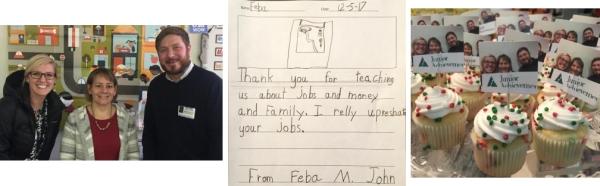 Name Feba Date 12-5-17
Thank you for teaching
us about Jobs and money
and Family. I relly upreshate
your Jobs.
From Feba M. John
Junior
Achievement
Junior
Achievement
Junior
Achievement